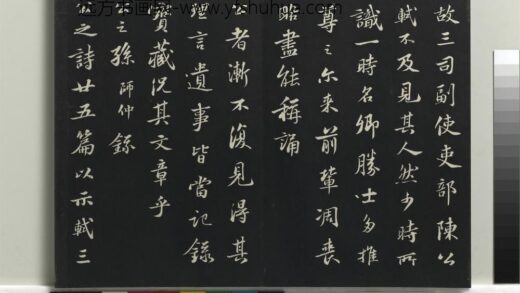 故三司副使吏部陳公
軾不及見其人然少時所
識一時名卿勝士多推
尊之尔来前輩凋喪
略盡能稱誦
公者漸不復見得其
言遺事皆當記錄
寶藏況其文章乎
公之孫師仲錄
公之詩廿五篇以示軾三